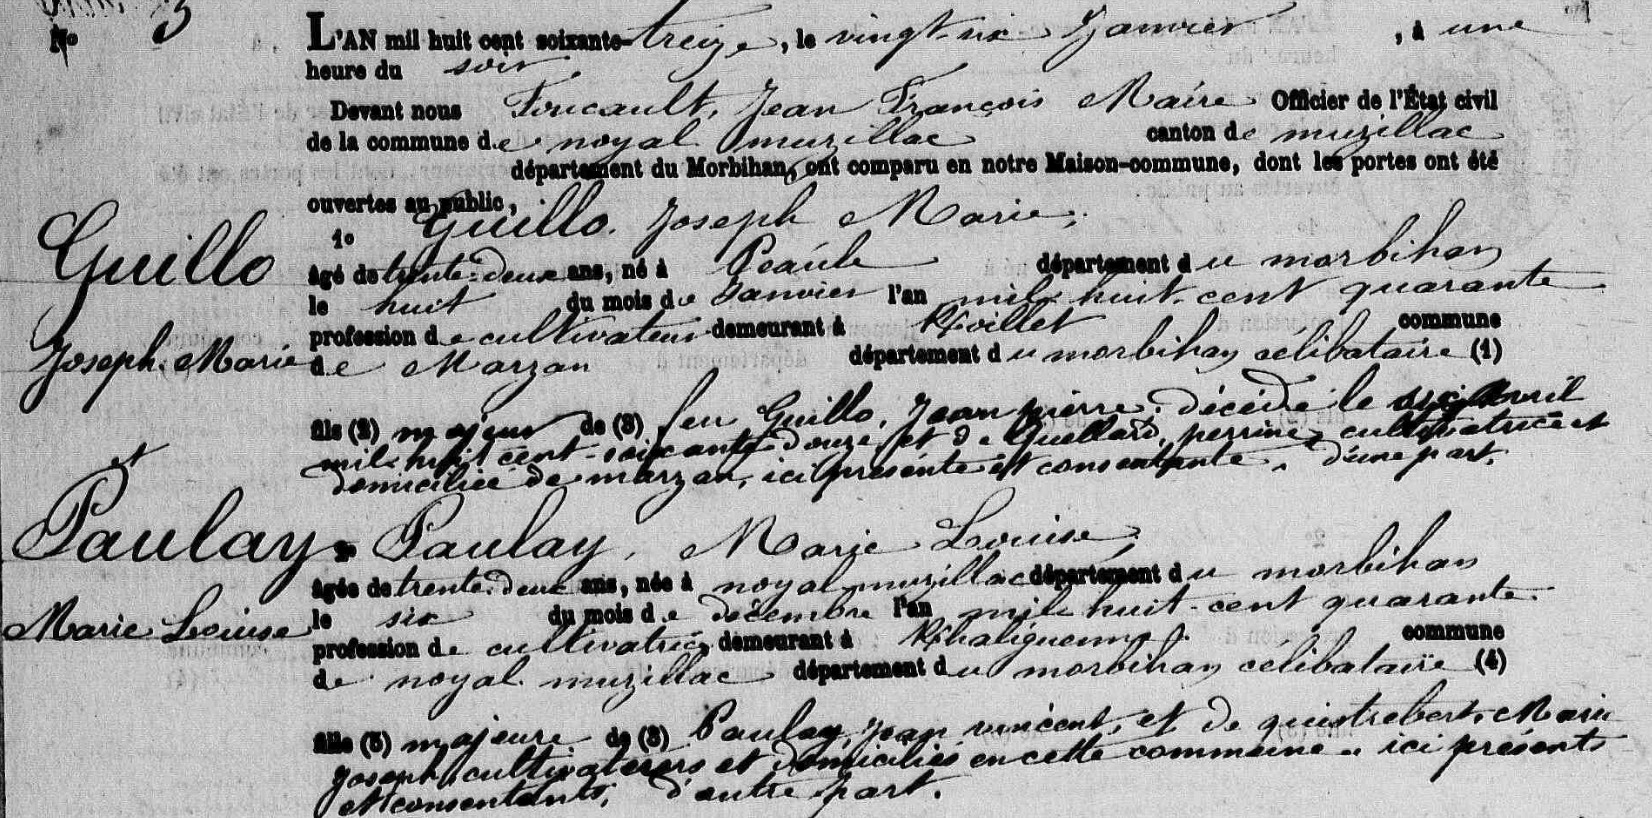 No 3
L'AN mil huit cent soixante-treize, le vingt-six Janvier, à une
heure du soir
Devant nous Foucault, Jean François Maire Officier de l'État civil
de la commune de noyal muzillac canton de muzillac
département du Morbihan, ont comparu en notre Maison-commune, dont les portes ont été
ouvertes au public,
1o Guillo. Joseph Marie,
Guillo
âgé de trente-deux ans, né à Péaule département du morbihan
le huit du mois de Janvier l'an mil huit-cent quarante
profession de cultivateur demeurant à commune
Joseph. Marie
de Marzan département du morbihan célibataire (1)
fils (2) majeur de (3) feu Guillo, Jean pierre, décédé le six Avril
mil huit cent-soixante douze et de Guellard, perrine, cultivatrice et
domiciliée de marzan, ici présente et consentante, d'une part.
et
Paulay
Paulay, Marie Louise
âgée de trente-deux ans, née à noyal muzillac département du morbihan
le six du mois de décembre l'an mil huit-cent quarante.
Marie Louise
profession de cultivatrice demeurant à commune
de noyal muzillac département du morbihan célibataire (4)
fille (5) majeure de (3) Paulay, Jean vincent, et de quistrebert, Marie
Joseph, cultivateurs et domiciliés en cette commune, ici présents
et consentants, d'autre part.